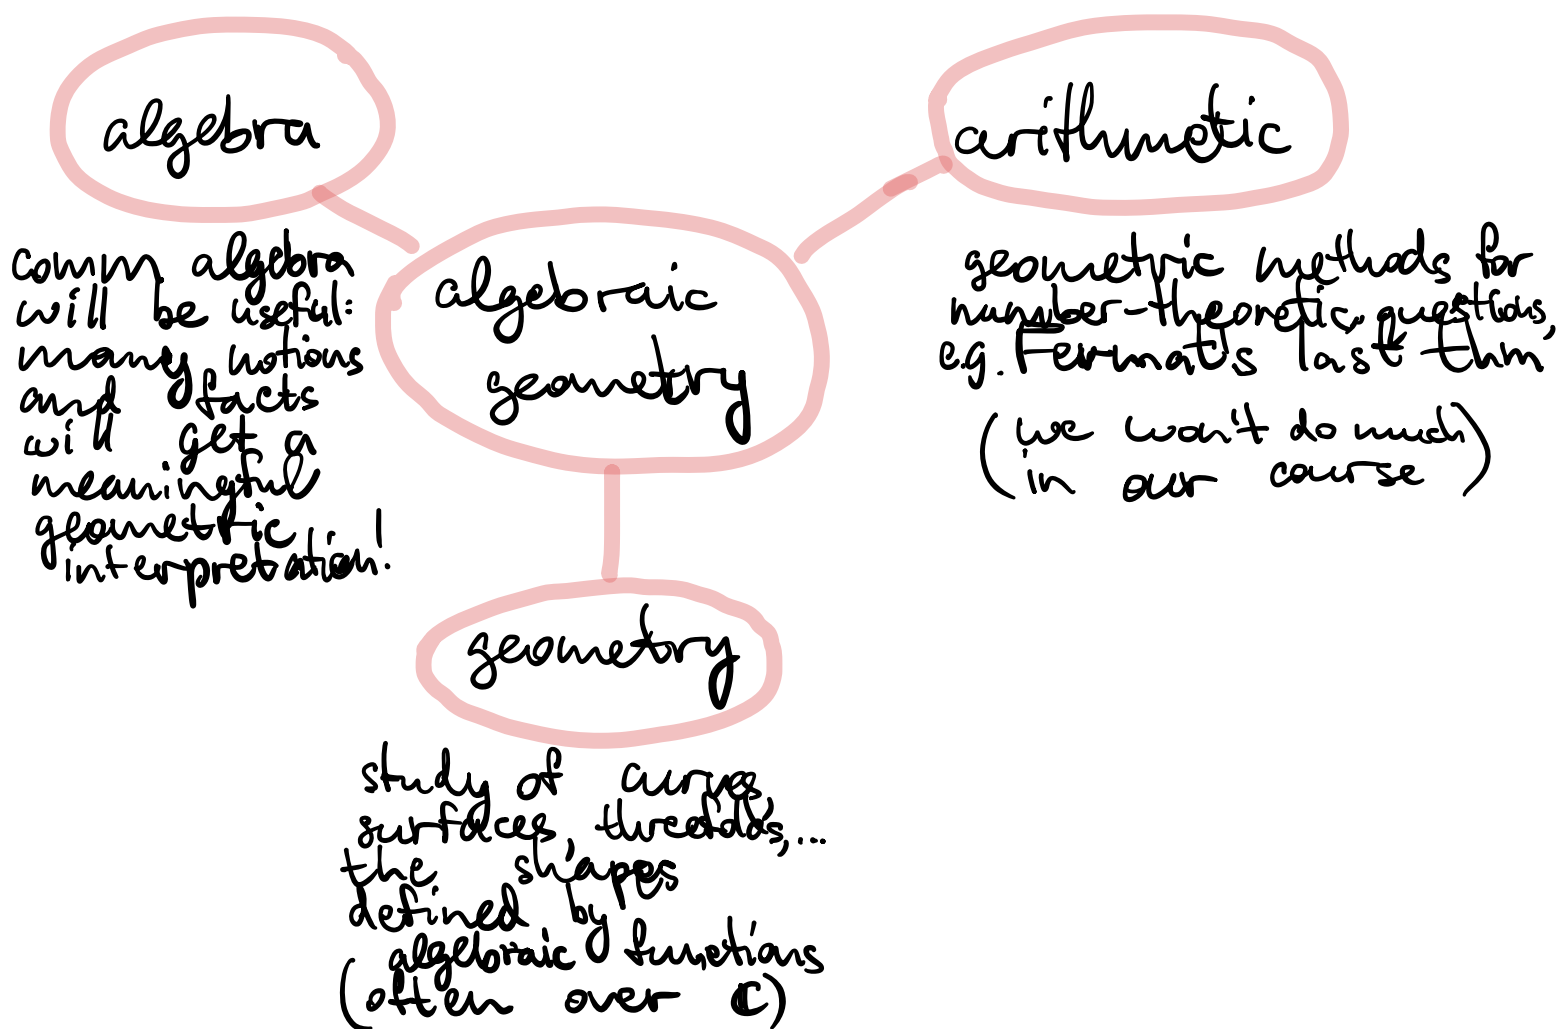 algebra
comm. algebra
will be useful:
many notions
and facts
will get a
meaningful
geometric
interpretation!
algebraic
geometry
arithmetic
geometric methods for
number-theoretic questions,
e.g. Fermat's last thm
(we won't do much
in our course)
geometry
study of curves,
surfaces, threefolds,...
the shapes
defined by
algebraic functions
(often over ℂ)